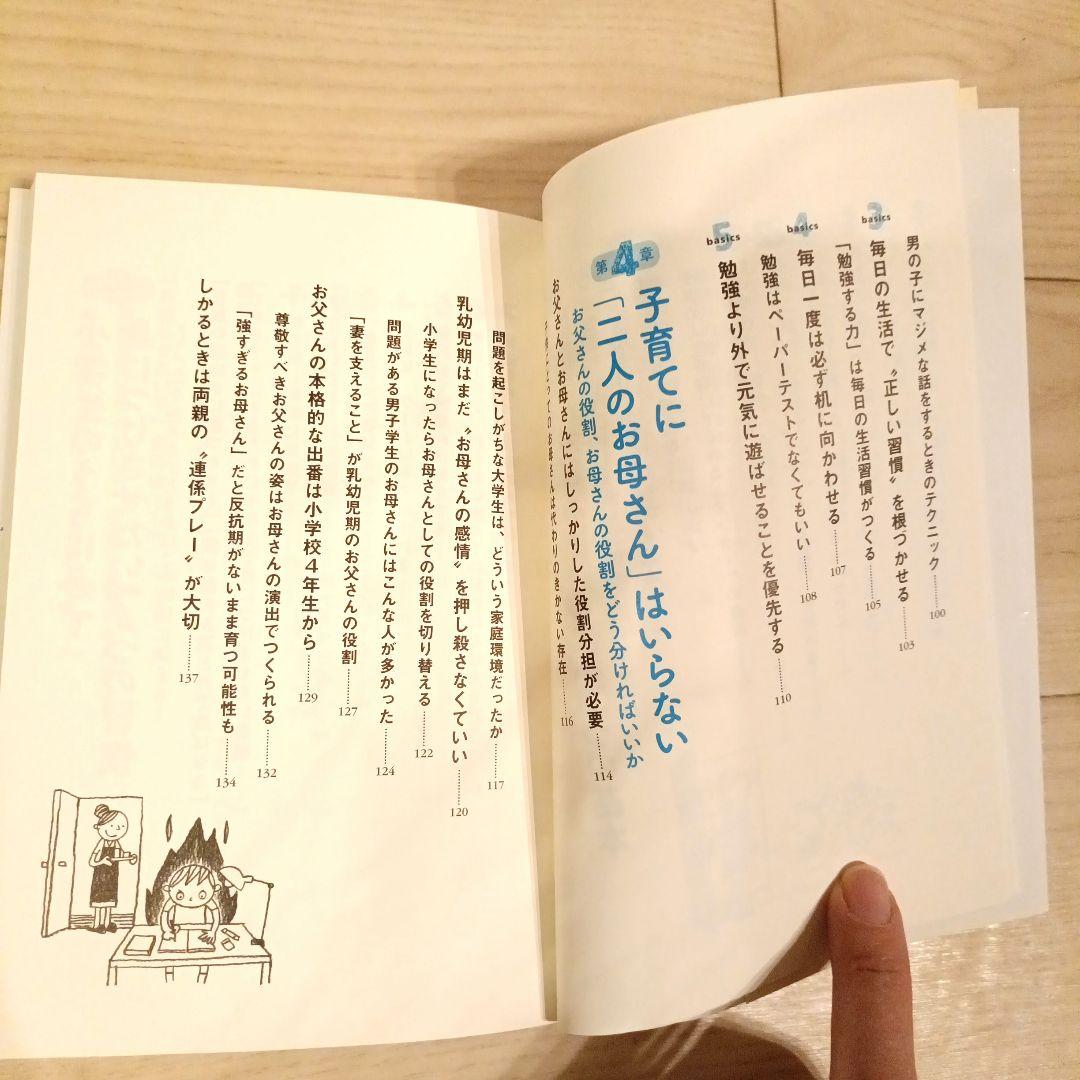 男の子にマジメな話をするときのテクニック 100
basics 3
毎日の生活で〝正しい習慣〟を根づかせる 103
「勉強する力」は毎日の生活習慣がつくる 105
basics 4
毎日一度は必ず机に向かわせる 107
勉強はペーパーテストでなくてもいい 108
basics 5
勉強より外で元気に遊ばせることを優先する 110
第4章
子育てに
「二人のお母さん」はいらない
お父さんの役割、お母さんの役割をどう分ければいいか
お父さんとお母さんにはしっかりした役割分担が必要 114
子供にとってのお母さんは代わりのきかない存在 116
問題を起こしがちな大学生は、どういう家庭環境だったか 117
乳幼児期はまだ〝お母さんの感情〟を押し殺さなくていい 120
小学生になったらお母さんとしての役割を切り替える 122
問題がある男子学生のお母さんにはこんな人が多かった 124
「妻を支えること」が乳幼児期のお父さんの役割 127
お父さんの本格的な出番は小学校4年生から 129
尊敬すべきお父さんの姿はお母さんの演出でつくられる 132
「強すぎるお母さん」だと反抗期がないまま育つ可能性も 134
しかるときは両親の〝連係プレー〟が大切 137